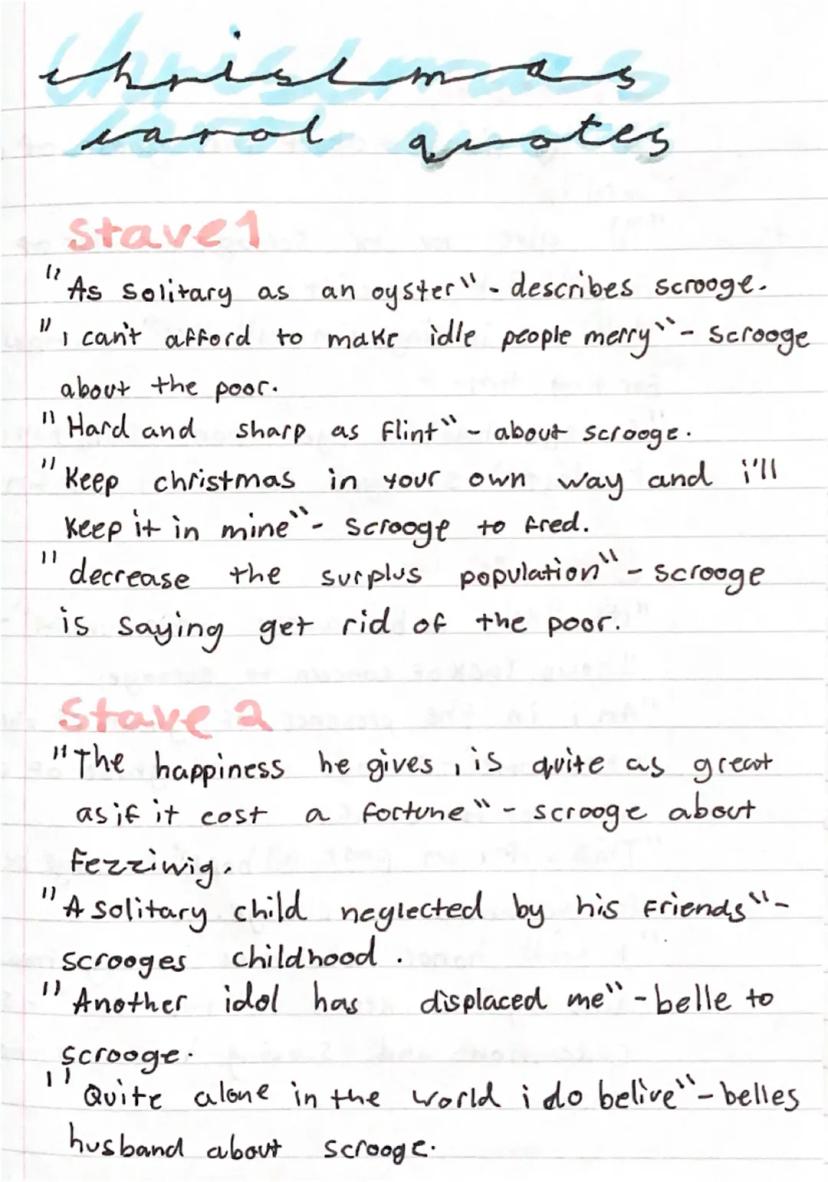 christmas
carol quotes
stave 1
"As solitary as an oyster" - describes scrooge.
"i can't afford to make idle people merry" - scrooge
about the poor.
"Hard and sharp as flint" - about scrooge.
"Keep christmas in your own way and i'll
keep it in mine" - scrooge to fred.
"decrease the surplus population" - scrooge
is saying get rid of the poor.
stave 2
"The happiness he gives, is quite as great
as if it cost a fortune" - scrooge about
fezziwig.
"A solitary child neglected by his friends" -
scrooges childhood.
"Another idol has displaced me" - belle to
scrooge.
"Quite alone in the world i do belive" - belles
husband about scrooge.